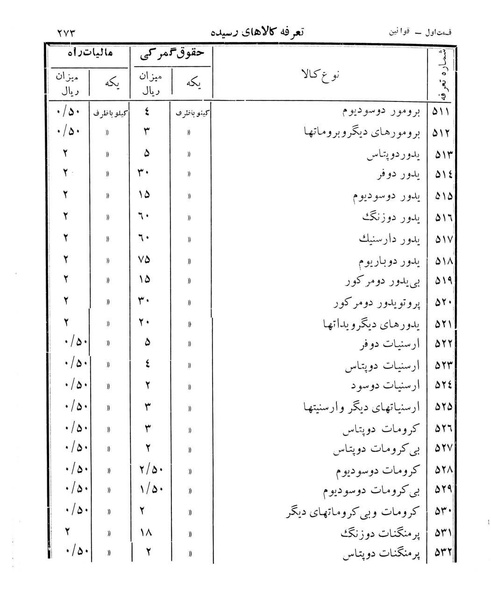 قسمت اول – قوانین تعرفه کالاهای رسیده ۲۷۳
شماره تعرفه نوع کالا حقوق گمرکی مالیات راه
یکه میزان ریال یکه میزان ریال
۵۱۱ برومور دوسودیوم کیلو باظرف ۴ کیلو باظرف ۰/۵۰
۵۱۲ برومورهای دیگر وبروماتها « ۳ « ۰/۵۰
۵۱۳ یدور دوپتاس « ۵ « ۲
۵۱۴ یدور دوفر « ۳۰ « ۲
۵۱۵ یدور دوسودیوم « ۱۵ « ۲
۵۱۶ یدور دوزنگ « ۶۰ « ۲
۵۱۷ یدور دارسنیك « ۶۰ « ۲
۵۱۸ یدور دوباریوم « ۷۵ « ۲
۵۱۹ بی یدور دومرکور « ۱۵ « ۲
۵۲۰ پروتویدور دومرکور « ۳۰ « ۲
۵۲۱ یدورهای دیگر ویداتها « ۲۰ « ۲
۵۲۲ ارسنیات دوفر « ۵ « ۰/۵۰
۵۲۳ ارسنیات دوپتاس « ۴ « ۰/۵۰
۵۲۴ ارسنیات دوسود « ۲ « ۰/۵۰
۵۲۵ ارسنیاتهای دیگر وارسنیتها « ۳ « ۰/۵۰
۵۲۶ کرومات دوپتاس « ۳ « ۰/۵۰
۵۲۷ بی کرومات دوپتاس « ۲ « ۰/۵۰
۵۲۸ کرومات دوسودیوم « ۲/۵۰ « ۰/۵۰
۵۲۹ بی کرومات دوسودیوم « ۱/۵۰ « ۰/۵۰
۵۳۰ کرومات وبی کروماتهای دیگر « ۲ « ۰/۵۰
۵۳۱ پرمنگنات دوزنگ « ۱۸ « ۲
۵۳۲ پرمنگنات دوپتاس « ۲ « ۰/۵۰